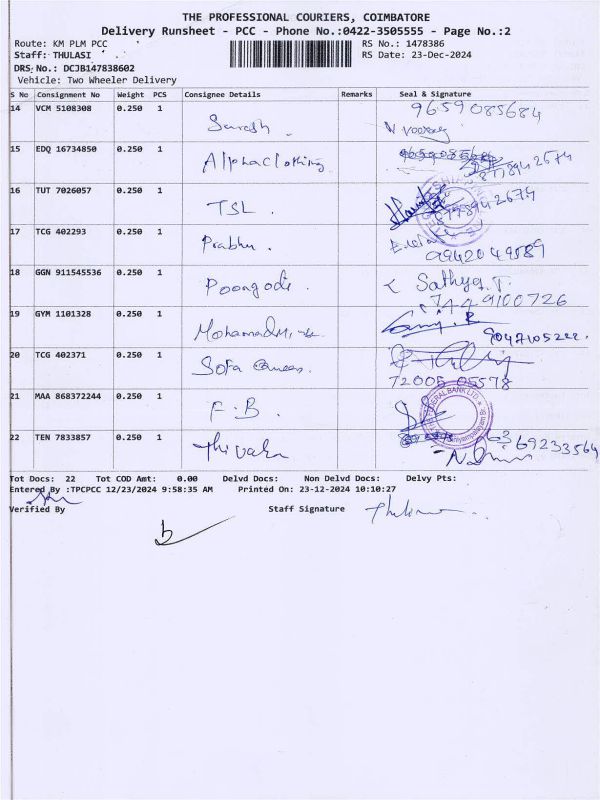 THE PROFESSIONAL COURIERS, COIMBATORE
Delivery Runsheet - PCC - Phone No.:0422-3505555 - Page No.:2
Route: KM PLM PCC RS No.: 1478386
Staff: THULASI RS Date: 23-Dec-2024
DRS No.: DCJB147838602
Vehicle: Two Wheeler Delivery
S No Consignment No Weight PCS Consignee Details Remarks Seal & Signature
14 VCM 5108308 0.250 1 Suresh. 9659085684
15 EDQ 16734850 0.250 1 Alphaclothing
16 TUT 7026057 0.250 1 TSL.
17 TCG 402293 0.250 1 Prabhu. 9942049589
18 GGN 911545536 0.250 1 Poongodi. Sathya.T.
7449100726
19 GYM 1101328 0.250 1 9047105222.
20 TCG 402371 0.250 1 Sofa
72005 05578
21 MAA 868372244 0.250 1 F.B.
22 TEN 7833857 0.250 1 Thivaka 6369233564
Tot Docs: 22 Tot COD Amt: 0.00 Delvd Docs: Non Delvd Docs: Delvy Pts:
Entered By :TPCPCC 12/23/2024 9:58:35 AM Printed On: 23-12-2024 10:10:27
Verified By Staff Signature